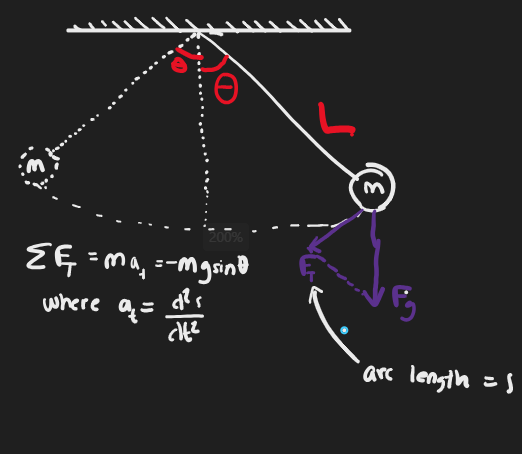 θ
θ
L
m
m
200%
ΣF_T = m a_t = -mg sinθ
F_T
F_g
where a_t = d²s/dt²
arc length = s